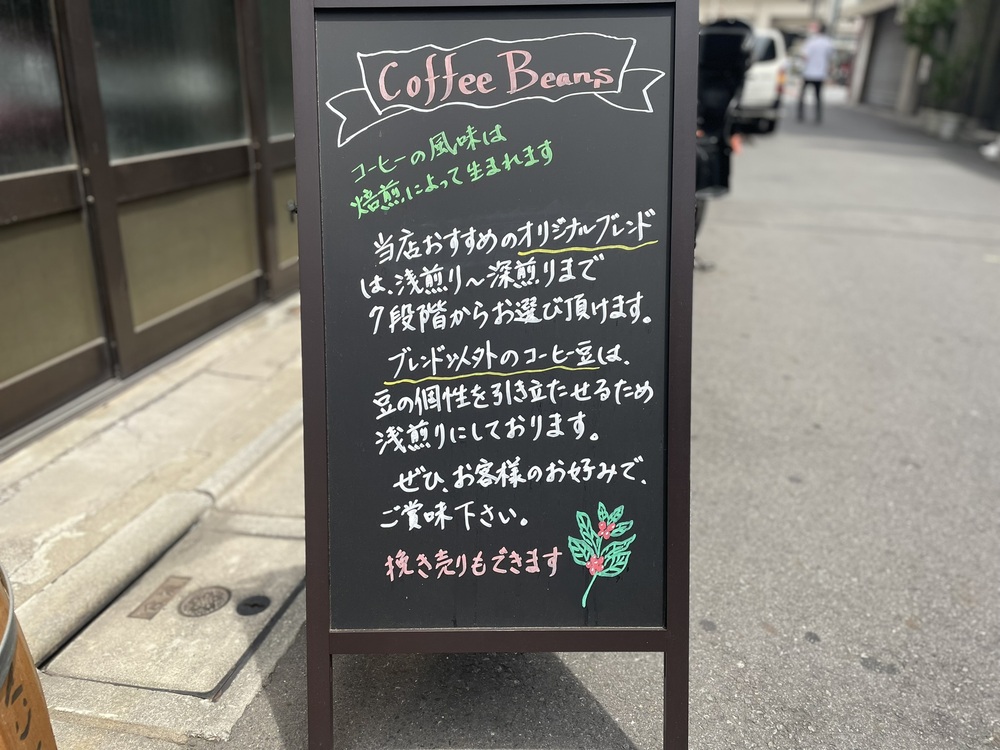 Coffee Beans
コーヒーの風味は
焙煎によって生まれます
当店おすすめのオリジナルブレンド
は、浅煎り～深煎りまで
7段階からお選び頂けます。
ブレンド以外のコーヒー豆は、
豆の個性を引き立たせるため
浅煎りにしております。
ぜひ、お客様のお好みで、
ご賞味下さい。
挽き売りもできます